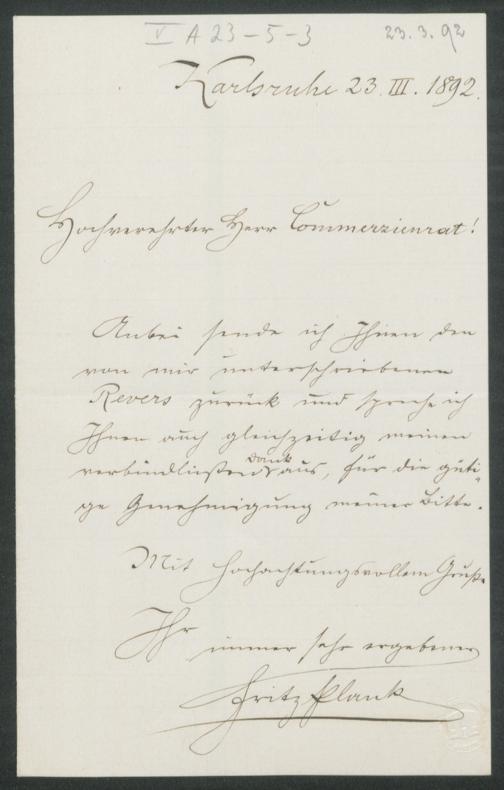 V A 23-5-3 23.3.92
Karlsruhe 23. III. 1892.
Hochverehrter Herr Commerzienrat!
Anbei sende ich Ihnen den
von mir unterschriebenen
Revers zurück und spreche ich
Ihnen auch gleichzeitig meinen
Dank
verbindlichsten aus, für die güti-
ge Genehmigung meiner Bitte.
Mit hochachtungsvollem Gruße
Ihr
immer sehr ergebener
Fritz Plank